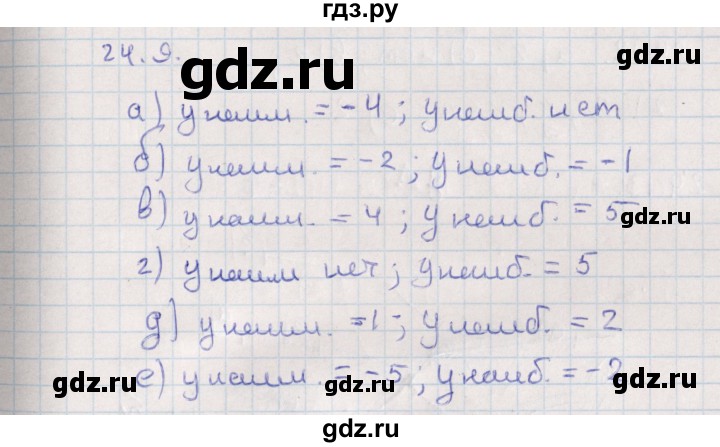 гдз.ру
24.9.
gdz.ru
а) y наим. = -4; y наиб. нет
б) y наим. = -2; y наиб. = -1
в) y наим. = 4; y наиб. = 5
gdz.ru
г) y наим нет; y наиб. = 5
д) y наим. = 1; y наиб. = 2
е) y наим. = -5; y наиб. = -2
gdz.ru gdz.ru gdz.ru
gdz.ru